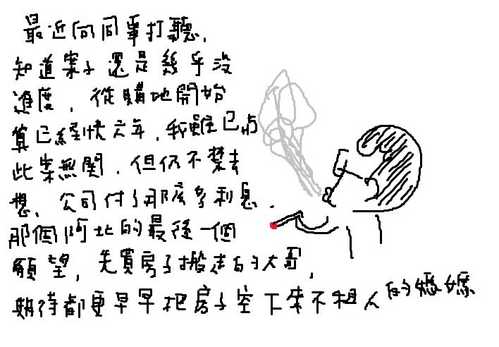 最近向同事打聽,
知道案子還是幾乎沒
進度, 從購地開始
算已經快六年, 我雖已與
此案無關, 但仍不禁去
想, 公司付了那麼多利息,
那個阿北的最後一個
願望, 先買房子搬走的大哥,
期待都更早早把房子空下來不租人的媽媽